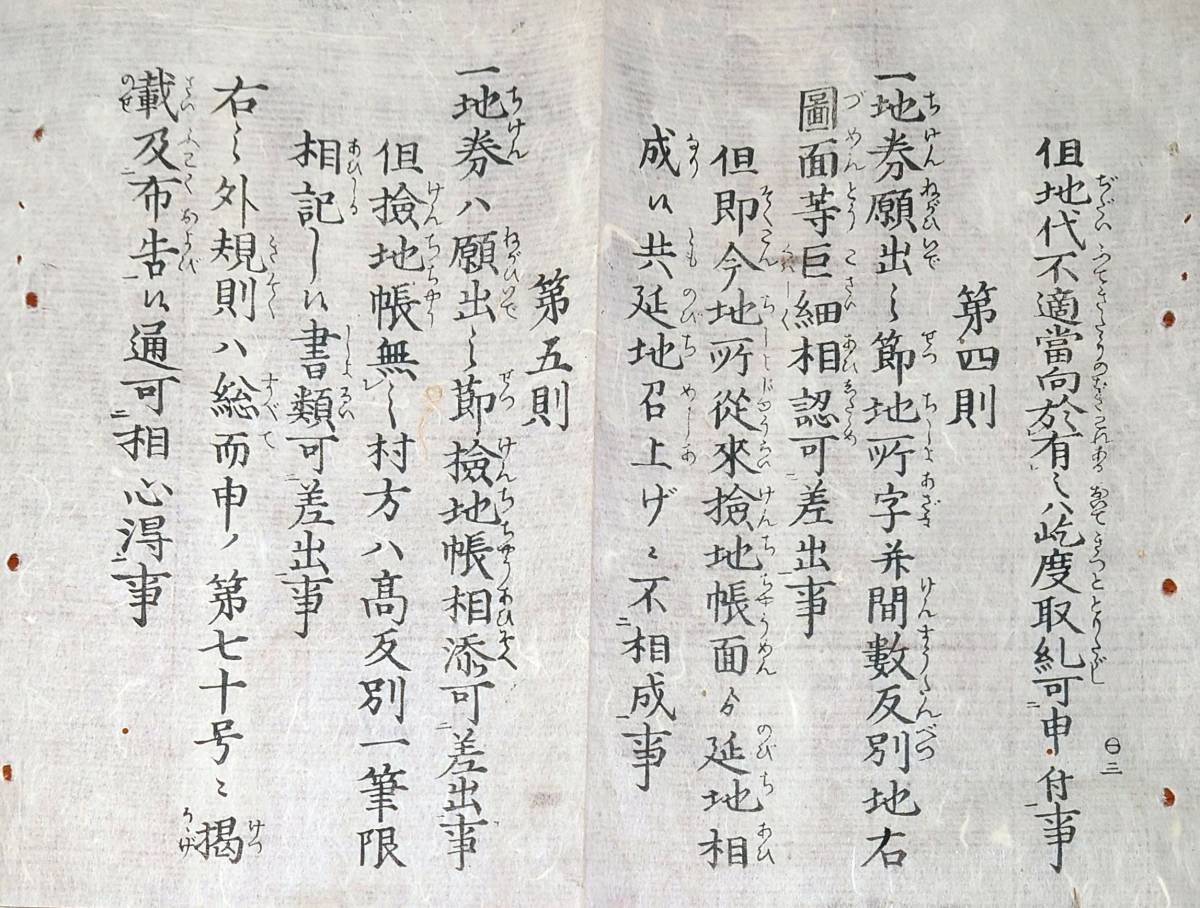 但地代不適當向於有之ハ屹度取糺可申付事
㊀三
第四則
一地券願出之節地所字并間數反別地右
圖面等巨細相認可差出事
但即今地所從來撿地帳面ゟ延地相
成候共延地召上ゲニ不相成事
第五則
一地券ハ願出之節撿地帳相添可差出事
但撿地帳無之村方ハ高反別一筆限
相記し候書類可差出事
右之外規則ハ総而申ノ第七十号ニ揭
載及布告候通可相心得事